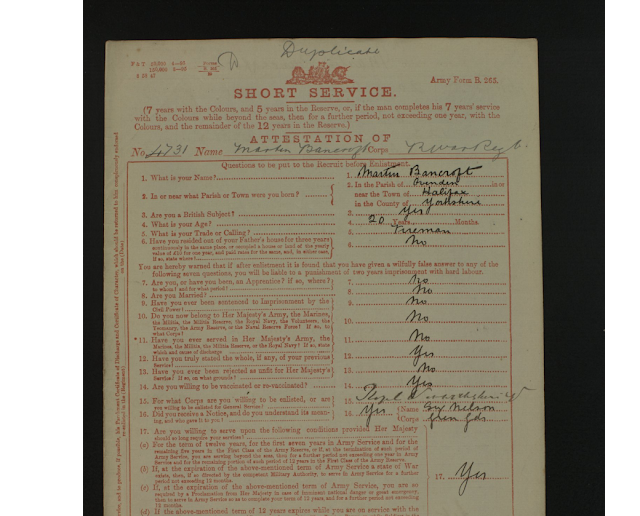 Duplicate
Army Form B. 265.
SHORT SERVICE.
(7 years with the Colours, and 5 years in the Reserve, or, if the man completes his 7 years' service
with the Colours while beyond the seas, then for a further period, not exceeding one year, with the
Colours, and the remainder of the 12 years in the Reserve.)
ATTESTATION OF
No. 4731 Name Martin Bancroft Corps R. War. Regt.
Questions to be put to the Recruit before Enlistment.
1. What is your Name? 1. Martin Bancroft
2. In or near what Parish or Town were you born? 2. In the Parish of in or
near the Town of Halifax
in the County of Yorkshire
3. Are you a British Subject? 3. Yes
4. What is your Age? 4. 20 Years Months.
5. What is your Trade or Calling? 5. Fireman
6. Have you resided out of your Father's house for three years 6. No
continuously in the same place, or occupied a house or land of the yearly
value of £10 for one year, and paid rates for the same, and, in either case,
if so, state where?
You are hereby warned that if after enlistment it is found that you have given a wilfully false answer to any of the
following seven questions, you will be liable to a punishment of two years imprisonment with hard labour.
7. Are you, or have you been, an Apprentice? if so, where? 7. No
to whom? and for what period?
8. Are you Married? 8. No
9. Have you ever been sentenced to Imprisonment by the 9. No
Civil Power?
10. Do you now belong to Her Majesty's Army, the Marines, 10. No
the Militia, the Militia Reserve, the Royal Navy, the Volunteers, the
Yeomanry, the Army Reserve, or the Naval Reserve Force? If so, to
what Corps?
*11. Have you ever served in Her Majesty's Army, the 11. No
Marines, the Militia, the Militia Reserve, or the Royal Navy? If so, state
which and cause of discharge
12. Have you truly stated the whole, if any, of your previous 12. Yes
Service?
13. Have you ever been rejected as unfit for Her Majesty's 13. No
Service? If so, on what grounds?
14. Are you willing to be vaccinated or re-vaccinated? 14. Yes
15. For what Corps are you willing to be enlisted, or are 15. Royal Warwickshire
you willing to be enlisted for General Service?
16. Did you receive a Notice, and do you understand its mean- 16. Yes Name Nelson
ing, and who gave it to you? Corps Gren Gds
17. Are you willing to serve upon the following conditions provided Her Majesty
should so long require your services?
(a) For the term of twelve years, for the first seven years in Army Service and for the
remaining five years in the First Class of the Army Reserve, or if, at the termination of such period of
Army Service, you are serving beyond the seas, then for a further period not exceeding one year in Army
Service and for the remaining portion of such period of 12 years in the First Class of the Army Reserve.
(b) If, at the expiration of the above-mentioned term of Army Service a state of War
exists, then, if so directed by the competent Military Authority, to serve in Army Service for a further
period not exceeding 12 months.
17. Yes
(c) If, at the expiration of the above-mentioned term of Army Service, you are so
required by a Proclamation from Her Majesty in case of imminent national danger or great emergency,
then to serve in Army Service so as to complete your term of 12 years, and for a further period not exceeding
12 months.
(d) If the above-mentioned term of 12 years expires while you are on service with the